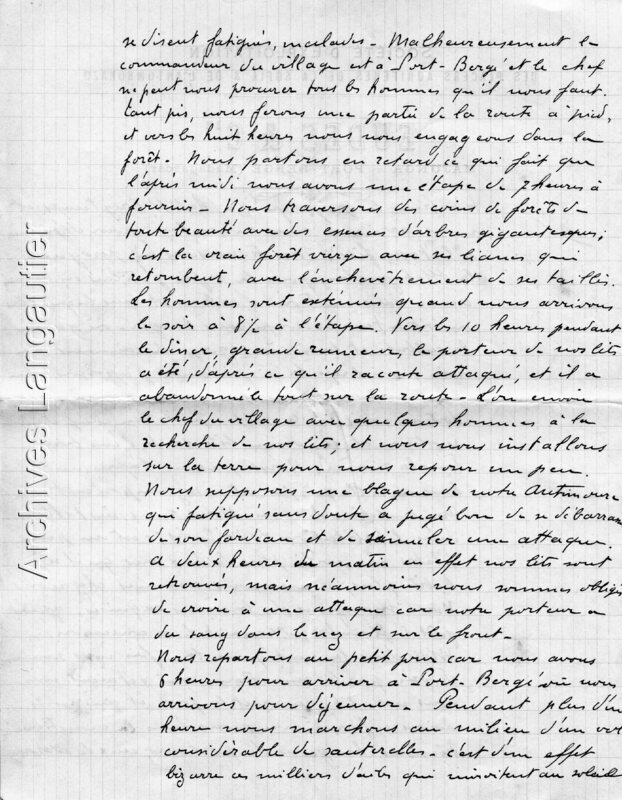 se disent fatigués, malades - Malheureusement le
commandeur du village est à Port-Bergé et le chef
ne peut nous procurer tous les hommes qu'il nous faut.
tant pis, nous ferons une partie de la route à pied,
et vers les huit heures nous nous engageons dans la
forêt. Nous partons en retard ce qui fait que
l'après midi nous avons une étape de 7 heures à
fournir - Nous traversons des coins de forêts de
toute beauté avec des essences d'arbres gigantesques;
c'est la vraie forêt vierge avec ses lianes qui
retombent, avec l'enchevêtrement de ses taillis.
Les hommes sont exténués quand nous arrivons
le soir à 8½ à l'étape. Vers les 10 heures pendant
le dîner, grande rumeur, le porteur de nos lits
a été, d'après ce qu'il raconte attaqué, et il a
abandonné le tout sur la route - L'on envoie
le chef du village avec quelques hommes à la
recherche de nos lits; et nous nous installons
sur la terre pour nous reposer un peu.
Nous supposons une blague de notre Antimoure
qui fatigué sans doute a jugé bon de se débarrasser
de son fardeau et de simuler une attaque.
A deux heures du matin en effet nos lits sont
retrouvés, mais néanmoins nous sommes obligés
de croire à une attaque car notre porteur a
du sang dans le nez et sur le front -
Nous repartons au petit jour car nous avons
6 heures pour arriver à Port-Bergé où nous
arrivons pour déjeuner. Pendant plus d'une
heure nous marchons au milieu d'un vol
considérable de sauterelles - c'est d'un effet
bizarre ces milliers d'ailes qui miroitent au soleil
Archives Langautier